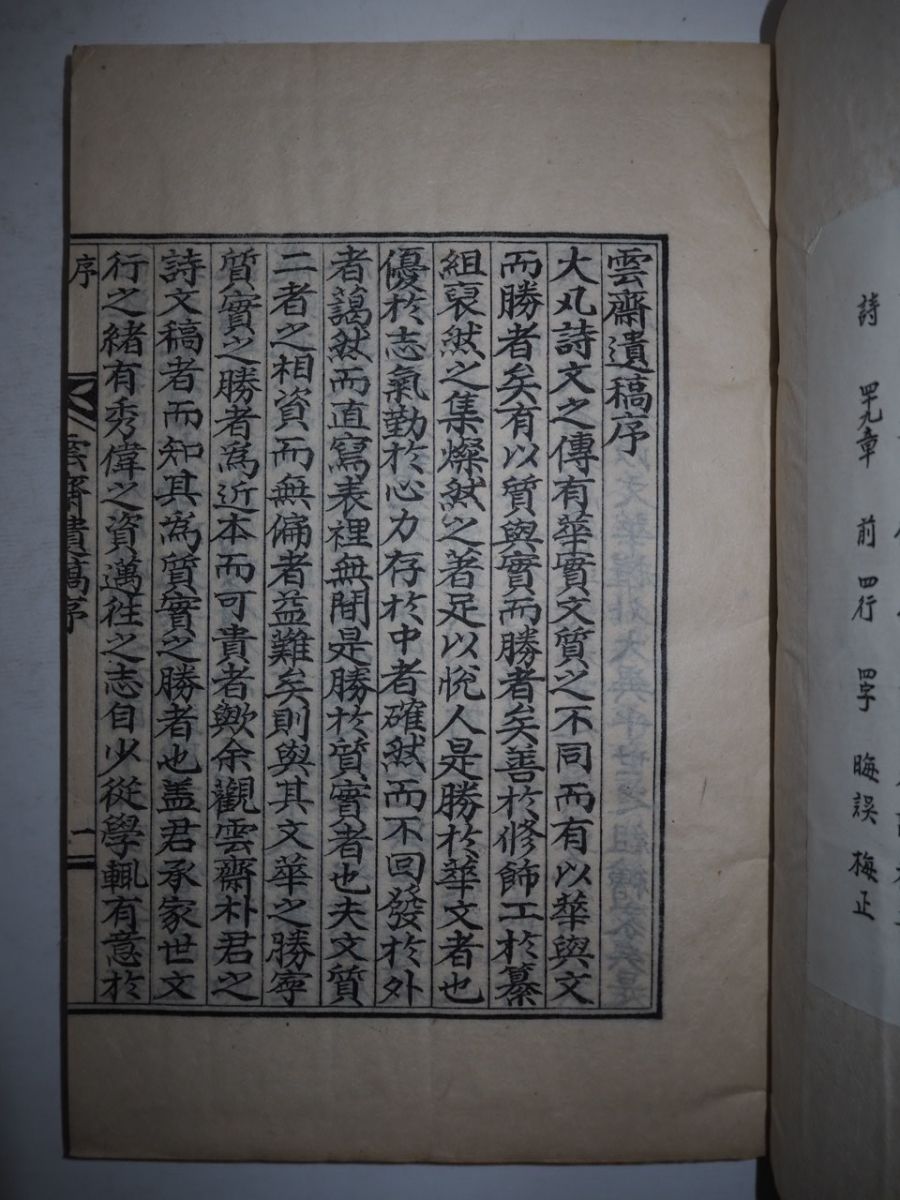 詩 四九章 前 四行 四字 晦誤 梅正
雲齋遺稿序
大凡詩文之傳有華實文質之不同而有以華與文
而勝者矣有以質與實而勝者矣善於修飾工於纂
組裒然之集燦然之著足以悅人是勝於華文者也
優於志氣勤於心力存於中者確然而不回發於外
者藹然而直寫表裡無間是勝於質實者也夫文質
二者之相資而無偏者益難矣則與其文華之勝寧
質實之勝者爲近本而可貴者歟余觀雲齋朴君之
詩文稿者而知其爲質實之勝者也盖君承家世文
行之緖有秀偉之資邁往之志自少從學輒有意於
序
雲齋遺稿序
一